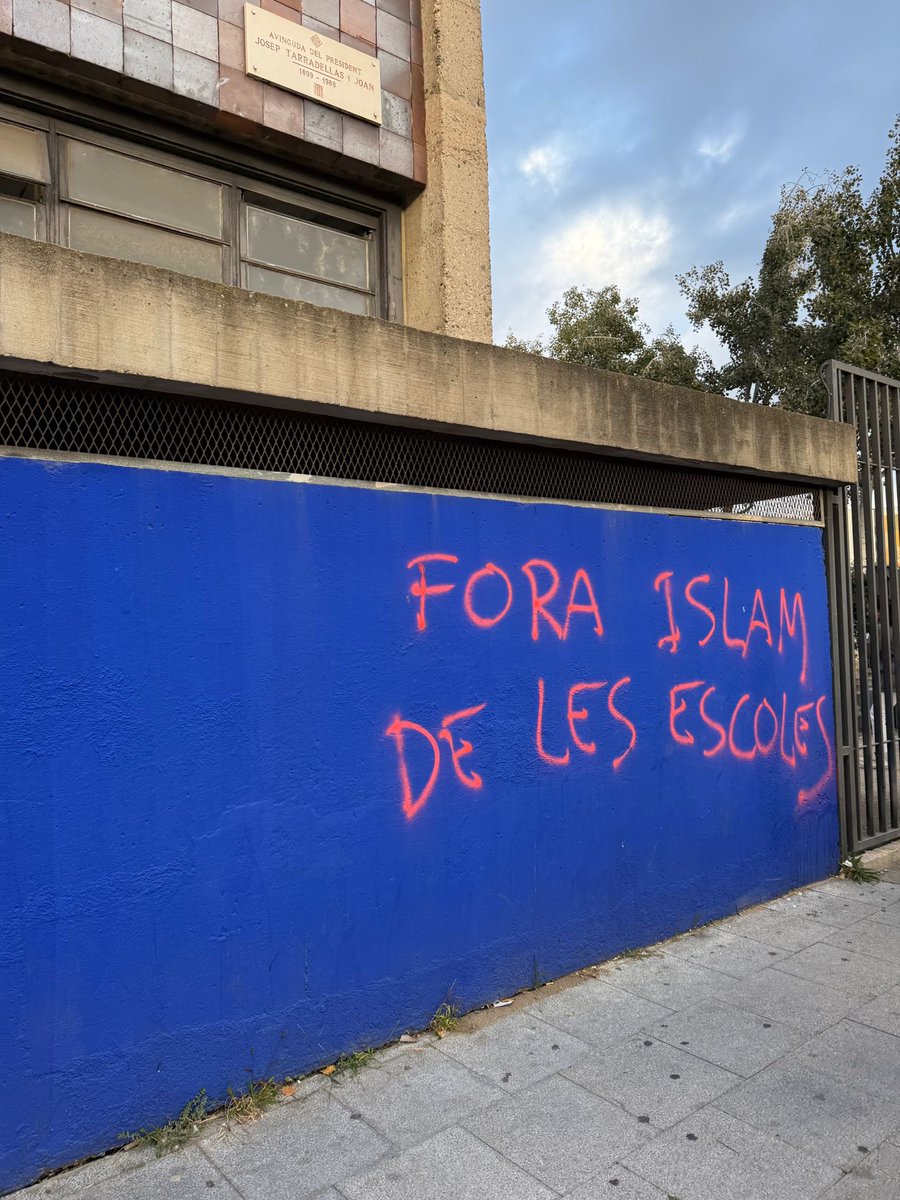 AVINGUDA DEL PRESIDENT
JOSEP TARRADELLAS I JOAN
1899 - 1988
FORA ISLAM
DE LES ESCOLES